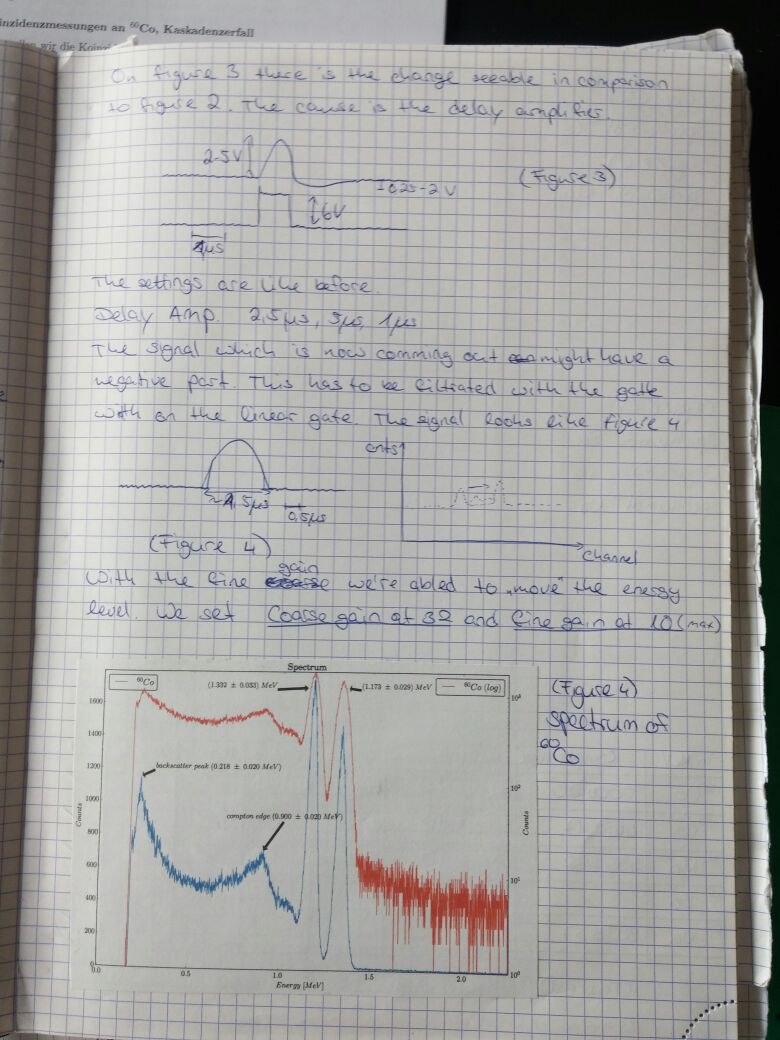 inzidenzmessungen an ⁶⁰Co, Kaskadenzerfall
wir die
On figure 3 there is the change seeable in comparison
to figure 2. The cause is the delay amplifier.
2-5V
-0,25-2 V
(Figure 3)
6V
1µs
The settings are like before.
Delay Amp. 2,5µs, 5µs, 1µs
The signal which is now comming out might have a
negative part. This has to be filtrated with the gate
with on the linear gate. The signal looks like figure 4
cnts
~1,5µs
0,5µs
Channel
(Figure 4)
gain
With the fine coarse we're abled to „move" the energy
level. We set Coarse gain at 32 and fine gain at 10 (max)
Spectrum
⁶⁰Co
(1.332 ± 0.033) MeV
(1.173 ± 0.029) MeV
⁶⁰Co (log)
backscatter peak (0.218 ± 0.020 MeV)
compton edge (0.900 ± 0.020 MeV)
1600
1400
1200
1000
800
600
400
200
0
Counts
10³
10²
10¹
10⁰
Counts
0.0
0.5
1.0
1.5
2.0
Energy [MeV]
(Figure 4)
spectrum of
⁶⁰Co